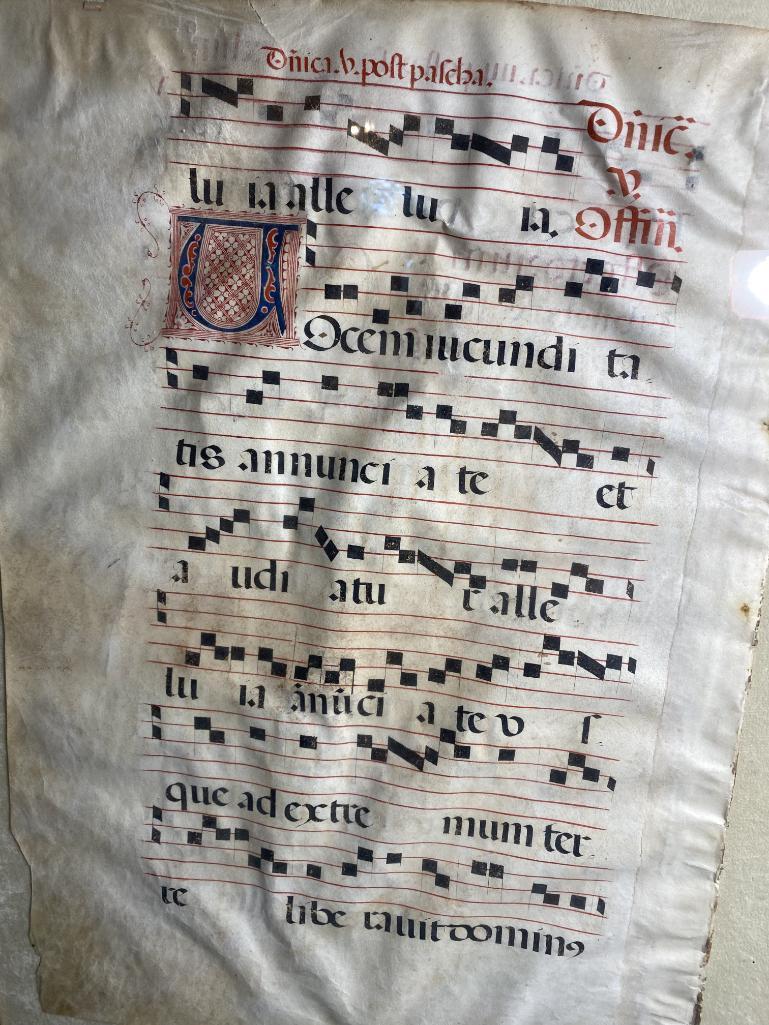 Dñica.v.post pascha.
Dñic̃.
lu ia alle lu ia.
v
Offm̃.
Vocem iucundi ta
tis annunci a te et
a udi atu r alle
lu ia ãnũci a te v s
que ad extre mum ter
re libe rauit dominꝰ